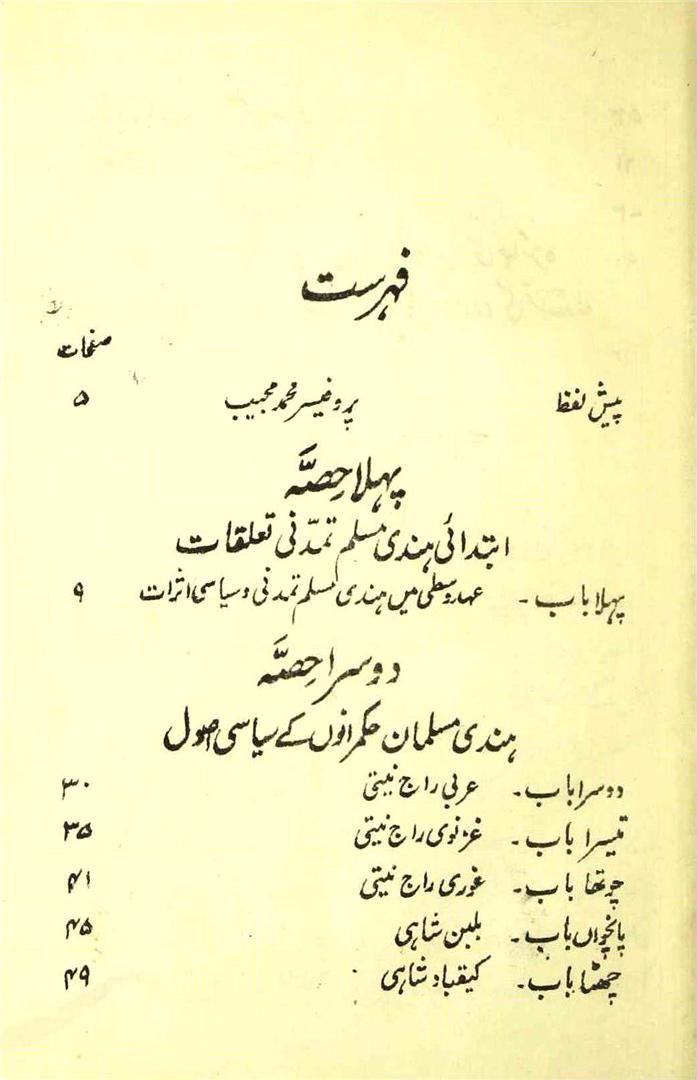 فہرست
صفحات
پیش لفظ پروفیسر محمد مجیب ۵
پہلا حصّہ
ابتدائی ہندی مسلم تمدّنی تعلقات
پہلا باب - عہد وسطیٰ میں ہندی مسلم تمدنی و سیاسی اثرات ۹
دوسرا حصّہ
ہندی مسلمان حکمرانوں کے سیاسی اصول
دوسرا باب - عربی راج نیتی ۳۰
تیسرا باب - غزنوی راج نیتی ۳۵
چوتھا باب - غوری راج نیتی ۴۱
پانچواں باب - بلبن شاہی ۴۵
چھٹا باب - کیقباد شاہی ۴۹